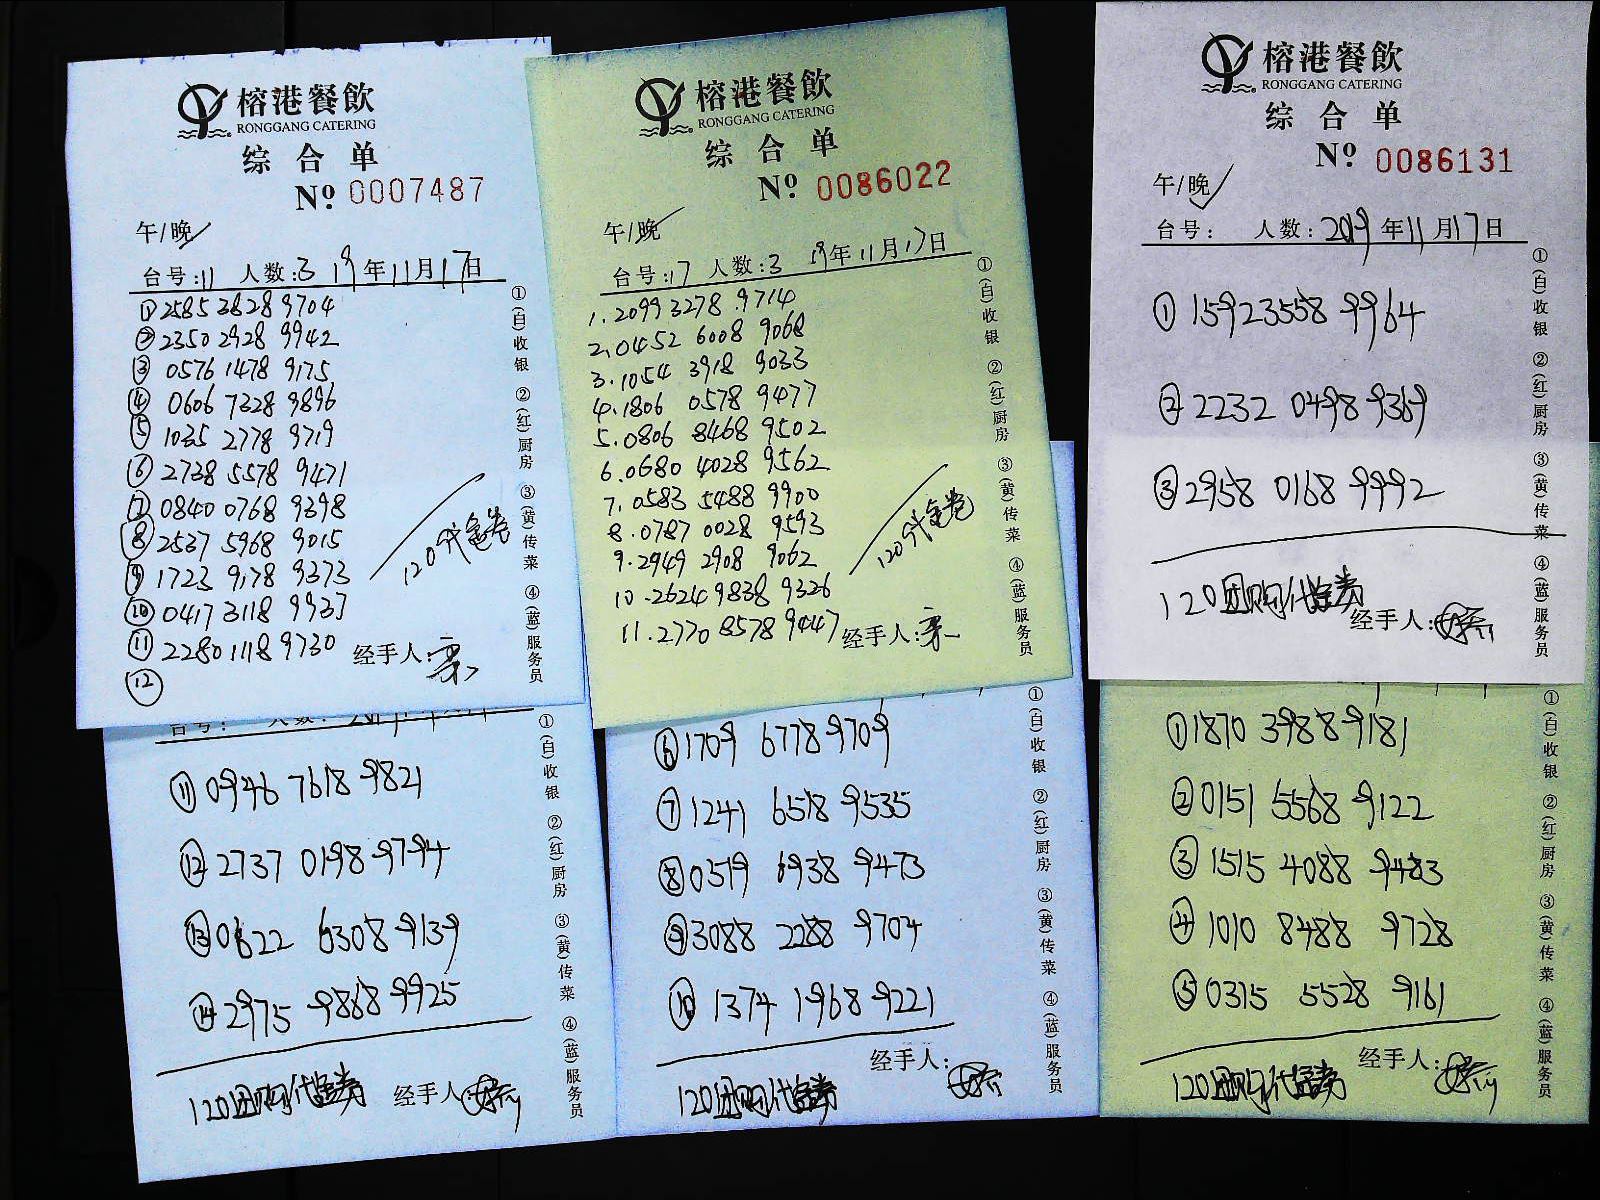 榕港餐飲
RONGGANG CATERING
综合单
Nº 0007487
午/晚
台号:11 人数:3 19年11月17日
①2585 3828 9704
②2350 2928 9942
③ 0576 1478 9175
④ 0606 7328 9896
⑤ 1035 2778 9719
⑥ 2738 5578 9471
⑦ 0840 0768 9398
⑧ 2537 5968 9015
⑨ 1723 9178 9373
⑩ 0417 3118 9937
⑪ 2280 1118 9730
⑫
120代金券
经手人:
①(白)收银 ②(红)厨房 ③(黄)传菜 ④(蓝)服务员
榕港餐飲
RONGGANG CATERING
综合单
Nº 0086022
午/晚
台号:17 人数:3 19年11月17日
1.2099 3278 9714
2.0452 6008 9068
3.1054 3918 9033
4.1806 0578 9477
5.0806 8468 9502
6.0680 4028 9562
7.0583 5488 9900
8.0787 0028 9593
9.2949 2908 9062
10.2624 9838 9326
11.2770 8578 9447
120代金券
经手人:
①(白)收银 ②(红)厨房 ③(黄)传菜 ④(蓝)服务员
榕港餐飲
RONGGANG CATERING
综合单
Nº 0086131
午/晚
台号: 人数: 2019年11月17日
① 1592 3558 9964
② 2232 0498 9369
③ 2958 0168 9992
120团购代金券
经手人:
①(白)收银 ②(红)厨房 ③(黄)传菜 ④(蓝)服务员
台号: 人数:
⑪ 0946 7618 9821
⑫ 2737 0198 9794
⑬ 0622 6308 9139
⑭ 2975 9868 9925
120团购代金券 经手人
①(白)收银 ②(红)厨房 ③(黄)传菜 ④(蓝)服务员
⑥ 1709 6778 9709
⑦ 1241 6518 9535
⑧ 0519 6938 9473
⑨ 3088 2288 9704
⑩ 1374 1968 9221
经手人:
120团购代金券
①(白)收银 ②(红)厨房 ③(黄)传菜 ④(蓝)服务员
① 1870 3988 9181
② 0151 5568 9122
③ 1515 4088 9483
④ 1010 8488 9728
⑤ 0315 5528 9161
经手人:
120团购代金券
①(白)收银 ②(红)厨房 ③(黄)传菜 ④(蓝)服务员